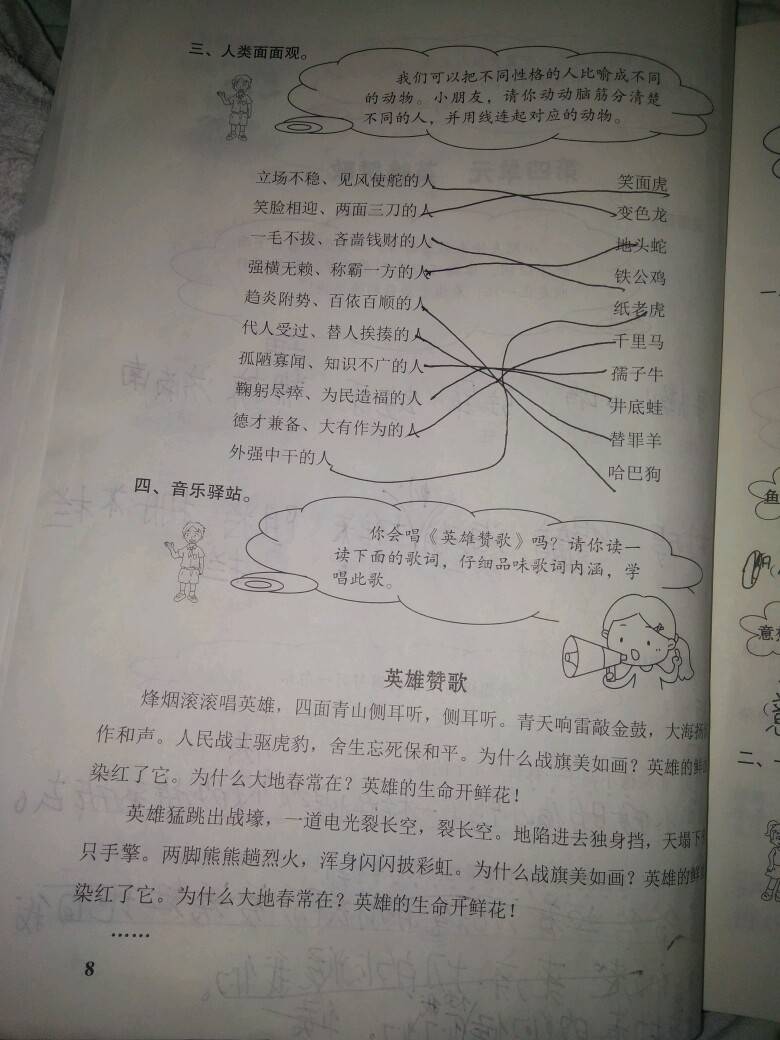 三、人类面面观。
我们可以把不同性格的人比喻成不同
的动物。小朋友，请你动动脑筋分清楚
不同的人，并用线连起对应的动物。
立场不稳、见风使舵的人 笑面虎
笑脸相迎、两面三刀的人 变色龙
一毛不拔、吝啬钱财的人 地头蛇
强横无赖、称霸一方的人 铁公鸡
趋炎附势、百依百顺的人 纸老虎
代人受过、替人挨揍的人 千里马
孤陋寡闻、知识不广的人 孺子牛
鞠躬尽瘁、为民造福的人 井底蛙
德才兼备、大有作为的人 替罪羊
外强中干的人 哈巴狗
四、音乐驿站。
你会唱《英雄赞歌》吗？请你读一
读下面的歌词，仔细品味歌词内涵，学
唱此歌。
英雄赞歌
烽烟滚滚唱英雄，四面青山侧耳听，侧耳听。青天响雷敲金鼓，大海扬
作和声。人民战士驱虎豹，舍生忘死保和平。为什么战旗美如画？英雄的鲜
染红了它。为什么大地春常在？英雄的生命开鲜花！
英雄猛跳出战壕，一道电光裂长空，裂长空。地陷进去独身挡，天塌下
只手擎。两脚熊熊趟烈火，浑身闪闪披彩虹。为什么战旗美如画？英雄的鲜
染红了它。为什么大地春常在？英雄的生命开鲜花！
……
8
鱼
二、